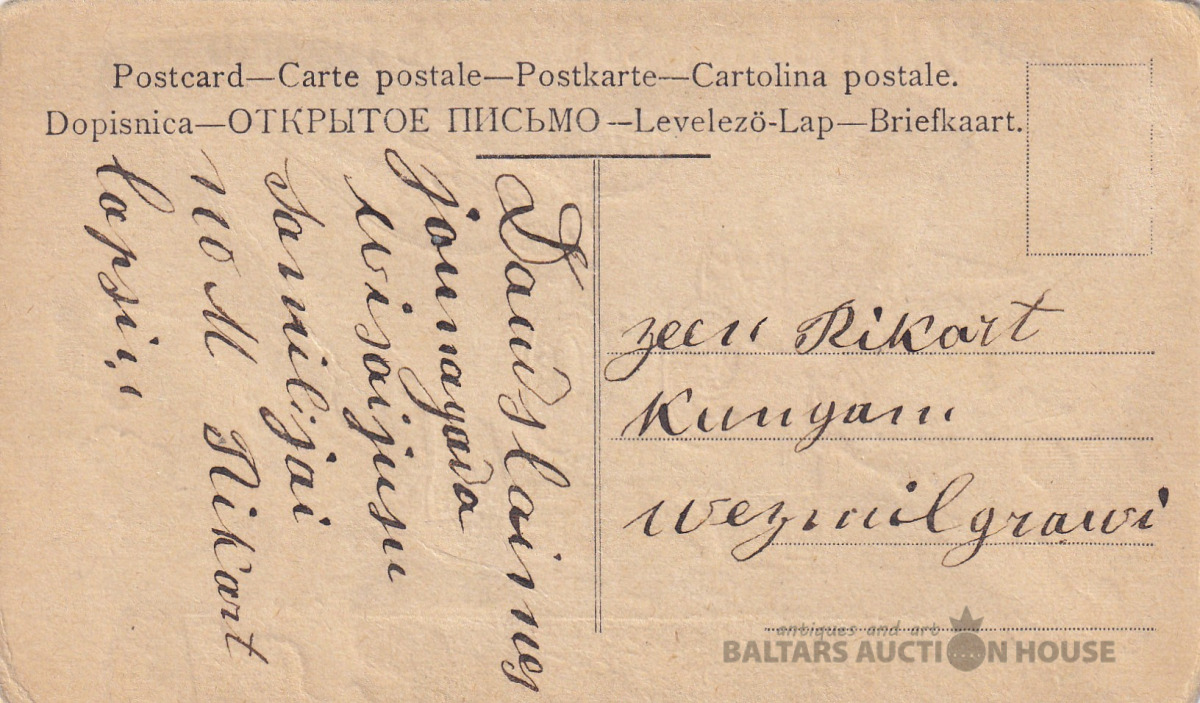 Postcard—Carte postale—Postkarte—Cartolina postale.
Dopisnica—ОТКРЫТОЕ ПИСЬМО—Levelezö-Lap—Briefkaart.
Daudslaimes
jaunagada
wisai jusu
familijai
no M Rikart
zeen Rikart
Kungam
wezmilgrawi
antiques and art
BALTARS AUCTION HOUSE